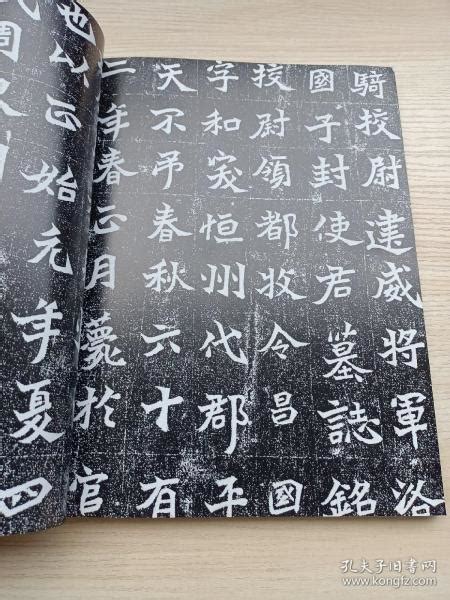 騎校尉建威將軍洛
國子封使君墓誌銘
校尉領都牧令昌國
字和突恒州代郡平
天不弔春秋六十有
二年春正月薨於官
也以正始元年夏四
周
孔夫子旧书网
www.kongfz.com